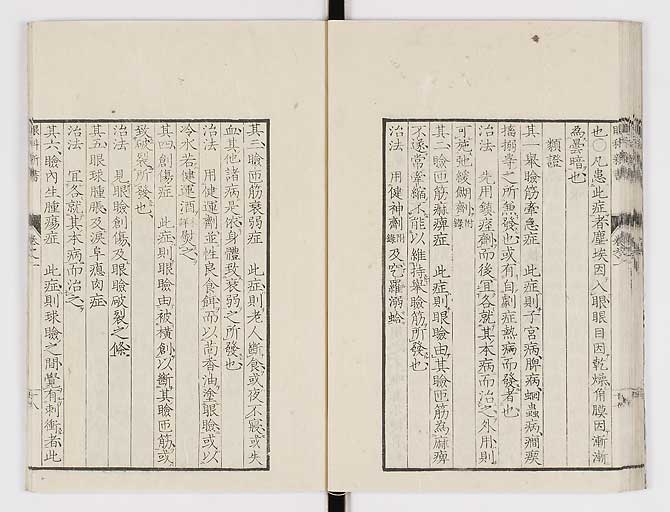 也〇凡患此症者塵埃因入眼眼目因乾燥角膜因漸漸
為曇暗也
類證
其一擧瞼筋牽急症 此症則子宮病脾病蛔蟲病癇疾
搐搦等之所無發也或有自劇症熱病而發者也
治法 先用鎮痙劑而後宜各就其本病而治之外用則
可施弛緩餬劑附錄
其二瞼匝筋麻痺症 此症則眼瞼由其瞼匝筋為麻痺
不遂常牽縮不能以維持擧瞼筋所發也
治法 用健神劑附錄及羅溺蛤
其三瞼匝筋衰弱症 此症則老人斷食或夜不寢或失
血其他諸病是依身體致衰弱之所發也
治法 用健運劑並性良食餌而以茴香油塗眼瞼或以
冷水若健運酒附錄熨之
其四創傷症 此症則眼瞼由被橫創以斷其瞼匝筋或
致破裂所發也
治法 見眼瞼創傷及眼瞼破裂之條
其五眼球腫脹及淚阜瘜肉症
治法 宜各就其本病而治之
其六瞼內生腫瘍症 此症則球瞼之間嘗有刺衝者此
眼科新書